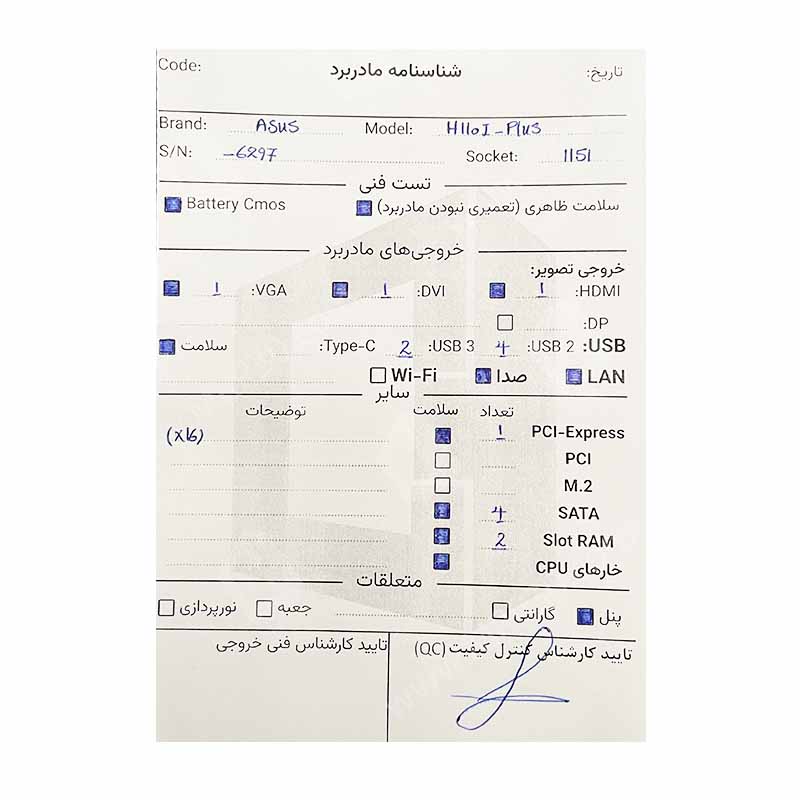 Code: شناسنامه مادربرد تاریخ:
Brand: ASUS Model: H110I-Plus
S/N: -6297 Socket: 1151
تست فنی
سلامت ظاهری (تعمیری نبودن مادربرد) Battery Cmos
خروجی‌های مادربرد
خروجی تصویر:
HDMI: 1 DVI: 1 VGA: 1
DP:
USB: USB 2: 4 USB 3: 2 Type-C: سلامت
LAN صدا Wi-Fi
سایر
تعداد سلامت توضیحات
PCI-Express 1 (X16)
PCI
M.2
SATA 4
Slot RAM 2
خارهای CPU
متعلقات
پنل گارانتی جعبه نورپردازی
تایید کارشناس کنترل کیفیت (QC) تایید کارشناس فنی خروجی